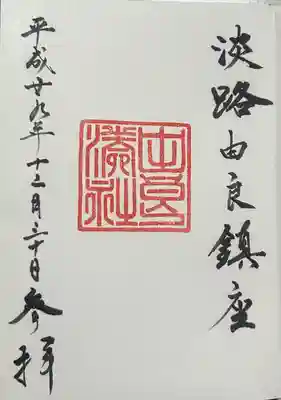 淡路由良鎮座
由良
湊社
平成廿九年十二月三十日参拝